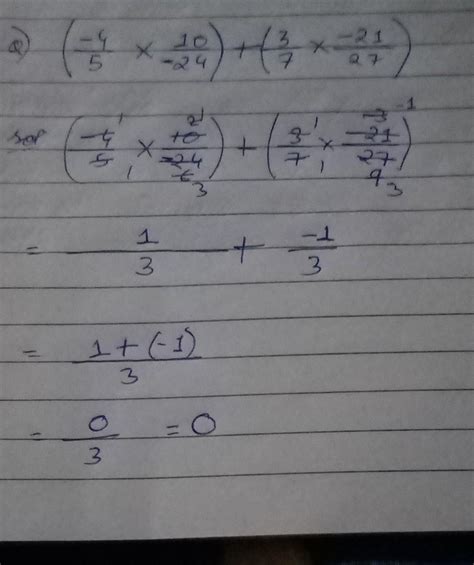 Q) (-4/5 × 10/-24) + (3/7 × -21/27)
sol (-4/5 × 10/-24) + (3/7 × -21/27)
= 1/3 + -1/3
= 1 + (-1)/3
= 0/3 = 0